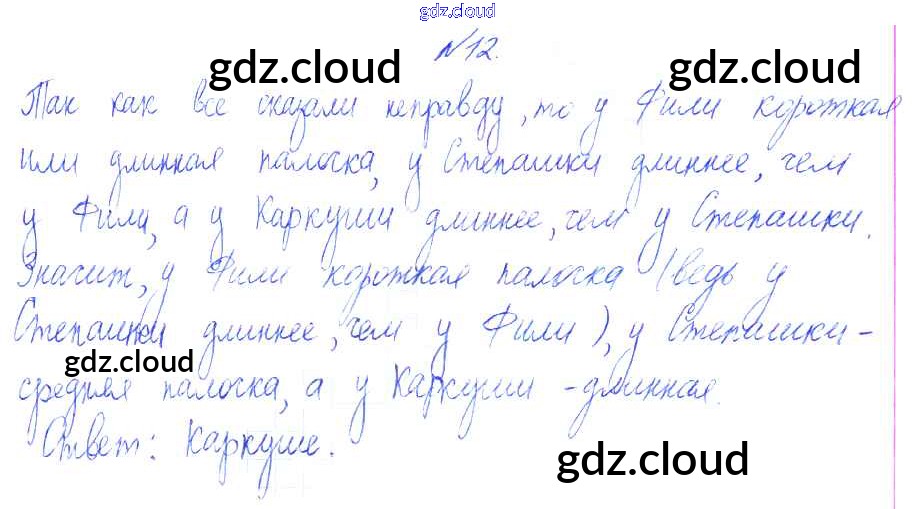 gdz.cloud
№12.
gdz.cloud gdz.cloud
Так как все сказали неправду, то у Фили короткая
или длинная палоска, у Степашки длиннее, чем
у Фили, а у Каркуши длиннее, чем у Степашки.
Значит, у Фили короткая палоска (ведь у
Степашки длиннее, чем у Фили), у Степашки -
gdz.cloud
средняя палоска, а у Каркуши - длинная.
Ответ: Каркуше.
gdz.cloud